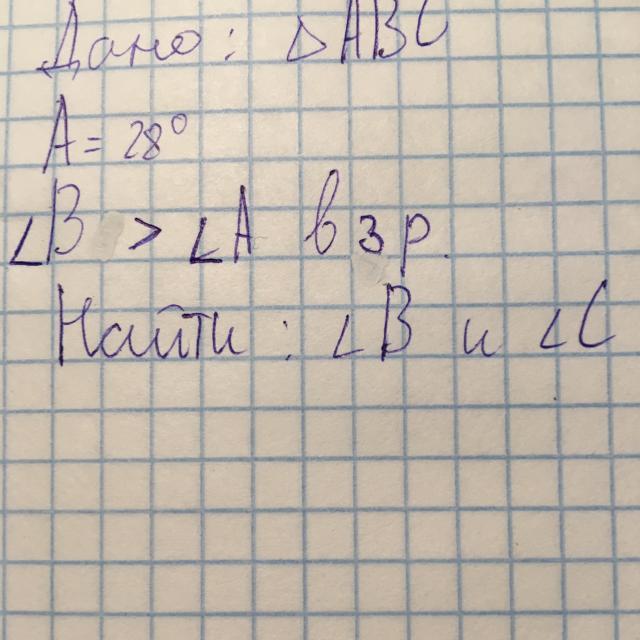 Дано: △ABC
A = 28°
∠B > ∠A в 3 р.
Найти: ∠B и ∠C